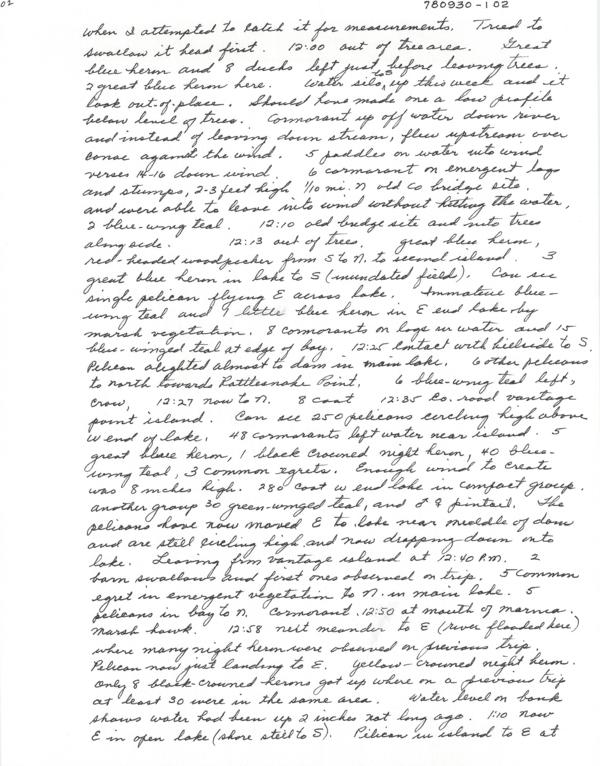 02
780930-102
when I attempted to catch it for measurements. Tried to
swallow it head first. 12:00 out of tree area. Great
blue heron and 8 ducks left just before leaving trees.
2 great blue heron here. Water silo, up this week and it
look out-of-place. Should have made one a low profile
below level of trees. Cormorant up off water down river
and instead of leaving down stream, flew upstream over
canoe against the wind. 5 paddles on water into wind
verses 14-16 down wind. 6 cormorant on emergent logs
and stumps, 2-3 feet high 1/10 mi. N old Co bridge site.
and were able to leave into wind without hitting the water,
2 blue-wing teal. 12:10 old bridge site and into trees
along side. 12:13 out of trees. great blue heron,
red-headed woodpecker from S to N. to second island. 3
great blue heron in lake to S (inundated fields). Can see
single pelican flying E across lake. Immature blue-
wing teal and 9 little blue heron in E end lake by
marsh vegetation. 8 cormorants on logs in water and 15
blue-winged teal at edge of bay. 12:25 contact with hillside to S.
Pelican alighted almost to dam in main lake. 6 other pelicans
to north towards Rattlesnake Point. 6 blue-wing teal left,
Crow, 12:27 now to N. 8 coot 12:35 Co. road vantage
point island. Can see 250 pelicans circling high above
W end of lake. 48 cormorants left water near island. 5
great blue heron, 1 black crowned night heron, 40 blue-
wing teal, 3 common egrets. Enough wind to create
was 8 inches high. 280 coot W end lake in compact group.
another group 30 green-winged teal, and ♂ ♀ pintail. The
pelicans have now moved E to lake near middle of dam
and are still circling high and now dropping down onto
lake. Leaving from vantage island at 12:40 P.M. 2
barn swallows and first ones observed on trip. 5 common
egret in emergent vegetation to N. in main lake. 5
pelicans in bay to N. Cormorant. 12:50 at mouth of
Marsh hawk. 12:58 next meander to E (river flooded here)
where many night heron were observed on previous trip
Pelican now just landing to E. Yellow-crowned night heron.
Only 8 black-crowned herons got up where on a previous trip
at least 30 were in the same area. Water level on bank
shows water had been up 2 inches not long ago. 1:10 now
E in open lake (shore still to S). Pelican in island to E at